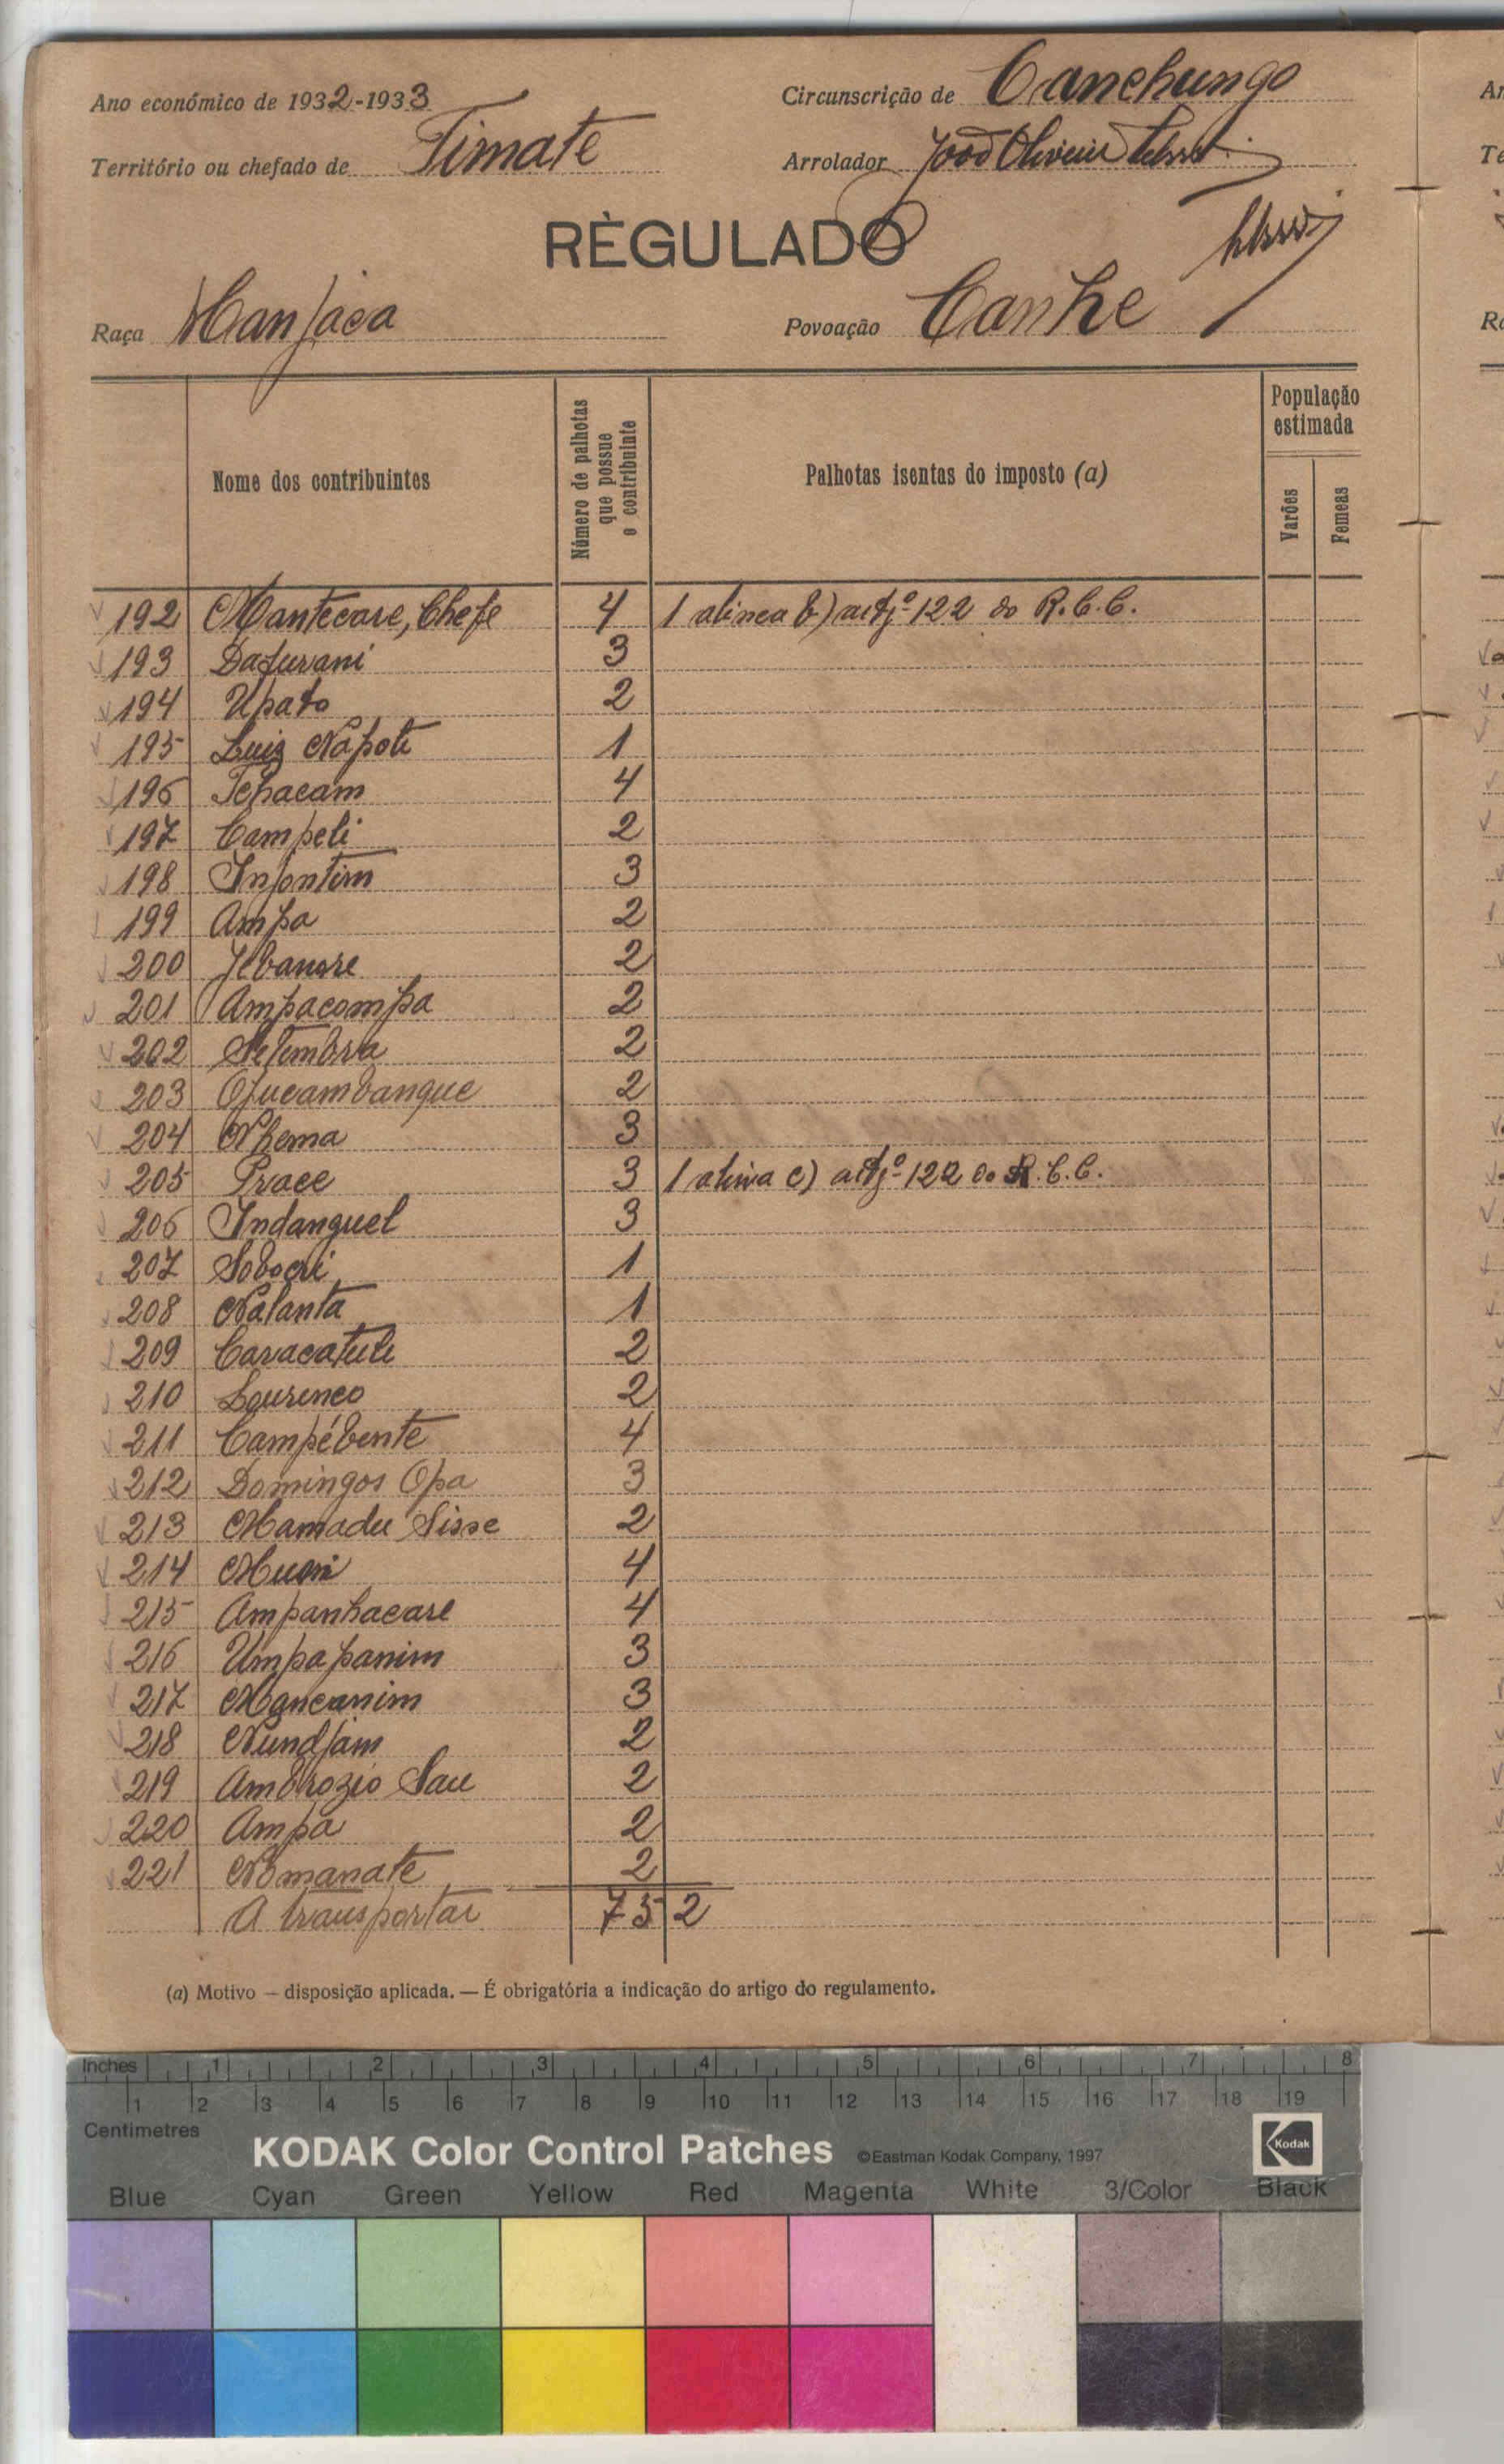 Ano económico de 1932-1933
Circunscrição de Canchungo
Território ou chefado de Timate
Arrolador João Oliveira
RÈGULADO
Raça Manjaca
Povoação Canhe
Nome dos contribuintes
Número de palhotas que possue o contribuinte
Palhotas isentas do imposto (a)
População estimada
Varões
Femeas
192 Mantecare, Chefe 4 1 alinea b) artgº 122 do R.C.C.
193 Dafurani 3
194 Upato 2
195 Luiz Napoti 1
196 Tchacam 4
197 Campeli 2
198 Infontim 3
199 Ampa 2
200 2
201 Ampacompa 2
202 Setembra 2
203 Ofucambangue 2
204 Nhema 3
205 Prace 3 1 alinea c) artgº 122 do R.C.C.
206 Indanguel 3
207 1
208 Nalanta 1
209 Caracatuli 2
210 Lourenco 2
211 Campébente 4
212 Domingos Opa 3
213 Mamadu Sisse 2
214 4
215 Ampanhacare 4
216 Umpapanim 3
217 Mancanim 3
218 Nundjam 2
219 Ambrozio Sau 2
220 Ampa 2
221 Nomanate 2
A transportar 75 2
(a) Motivo — disposição aplicada. — É obrigatória a indicação do artigo do regulamento.
Inches 1 2 3 4 5 6 7 8
1 2 3 4 5 6 7 8 9 10 11 12 13 14 15 16 17 18 19
Centimetres
KODAK Color Control Patches ©Eastman Kodak Company, 1997 Kodak
Blue Cyan Green Yellow Red Magenta White 3/Color Black